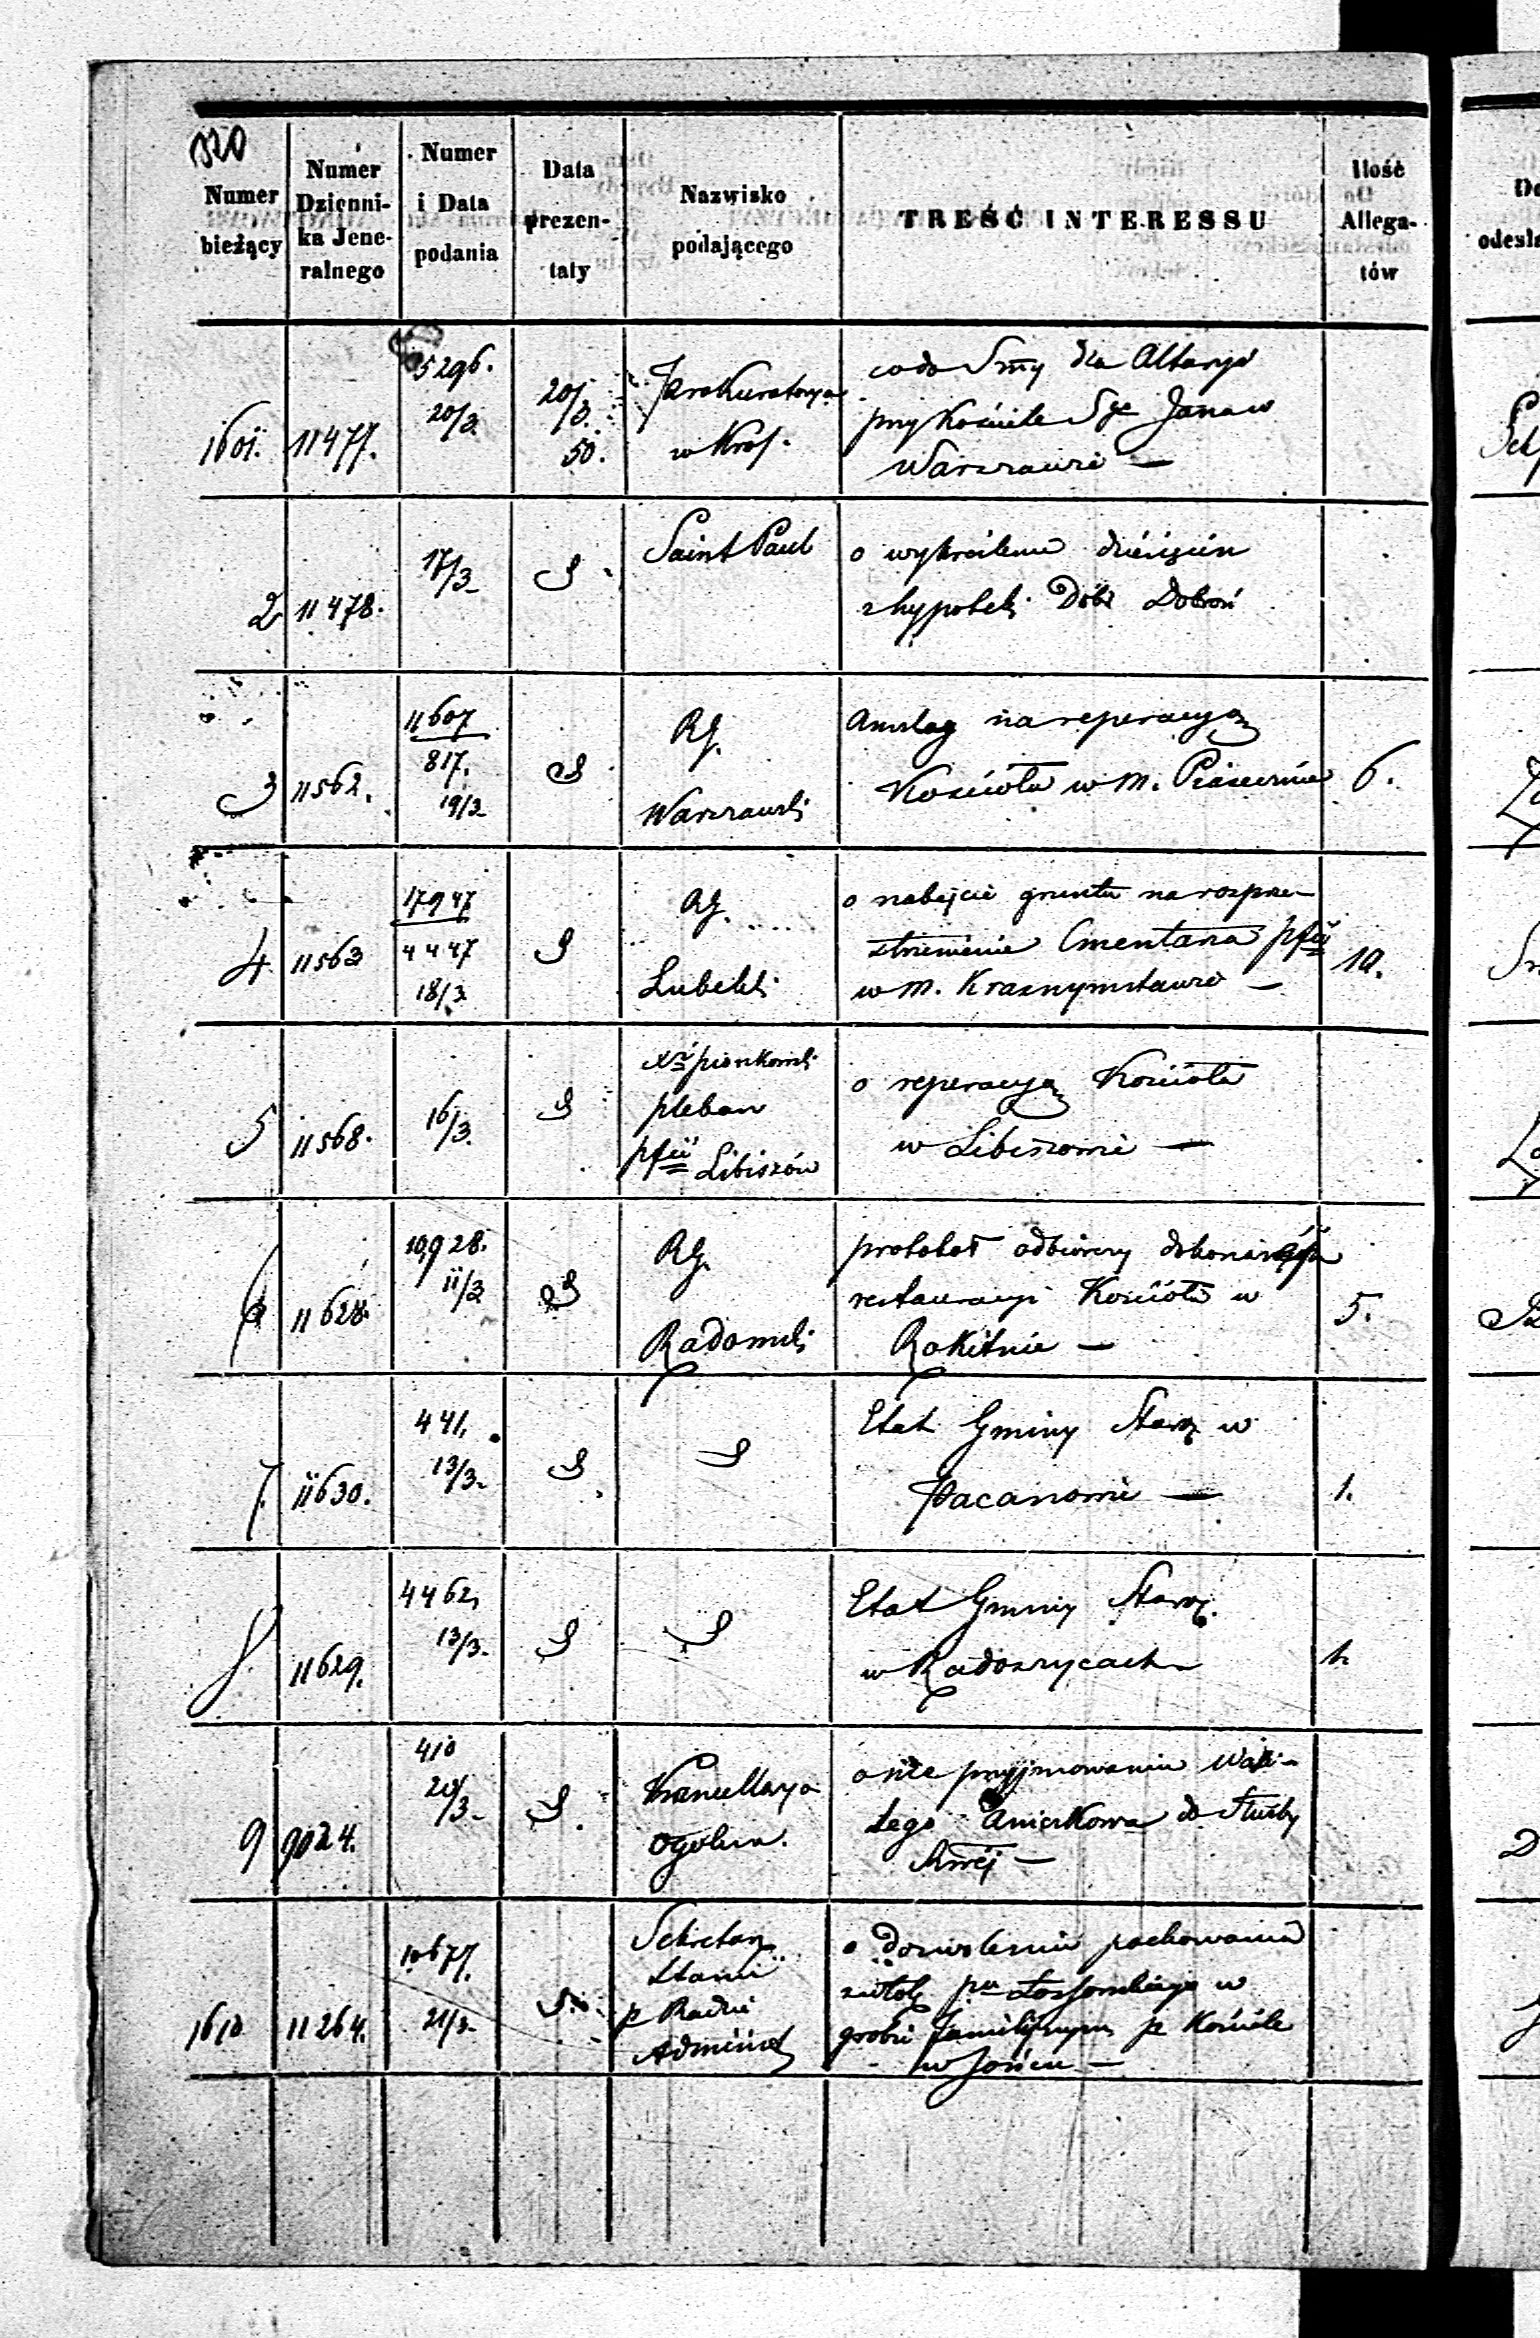 320
Numer bieżący | Numer Dzienni-ka Jene-ralnego | Numer i Data podania | Data prezen-taty | Nazwisko podającego | TREŚĆ INTERESSU | Ilość Allega-tów
1601. | 11477. | 5296. 20/3. | 20/3. 50. | Prokuratorya w Król. | co do Smy dla Altaryi
przy Kościele Sgo Jana w
Warszawie —
2 | 11478. | 17/3 | Saint Paul | o wykreślenie dziesięcin
z hypoteki Dóbr Dobroń
3 | 11562. | 11607 817. 19/3 | RG. Warszawski | Anszlag na reperacyą
Kościoła w m. Piasecznie | 6.
4 | 11563 | 17947 4447 18/3 | RG. Lubelski | o nabycie gruntu na rozprze-
strzenienie Cmentarza pfii
w m. Krasnymstawie — | 10.
5 | 11568. | 16/3. | Xdz pleban pfii Libiszów | o reperacyą Kościoła
w Libiszowie —
6 | 11628. | 10,928. 11/3 | RG. Radomski | protokół odbiorczy
restauracyi Kościoła w
Rokitnie — | 5.
7. | 11630. | 441. 13/3. | Etat Gminy Staroz. w
Pacanowie — | 1.
8 | 11629. | 4462. 13/3. | Etat Gminy Staroz.
w Radoszycach | 1.
9 | 9024. | 410 20/3. | Kancellarya ogólna. | o nie przyjmowaniu
do służby
—
1610 | 11264. | 10677. 21/3. | Sekretarz Stanu p Radzie Administ | o dozwolenie pochowania
zwłok pa w
grobie familijnym p Kościele
w —